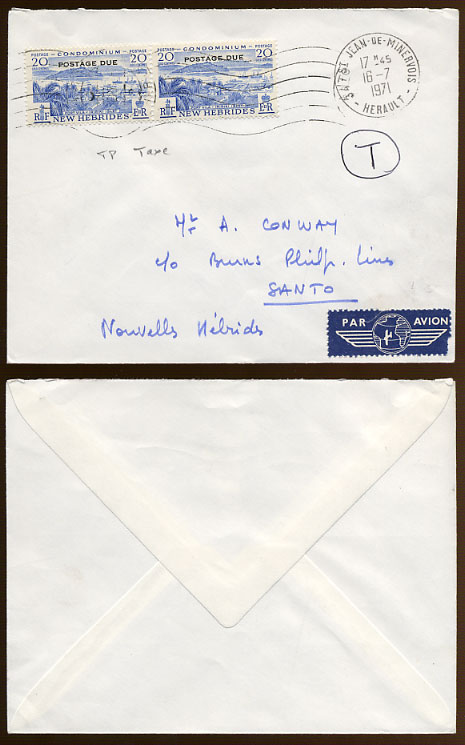 POSTAGE CONDOMINIUM POSTAGE
20 POSTAGE DUE 20
RF NEW HEBRIDES ER
POSTAGE CONDOMINIUM POSTAGE
20 POSTAGE DUE 20
RF NEW HEBRIDES ER
ST JEAN-DE-MINERVOIS
17 H 45
16-7
1971
- HERAULT -
T
TP Taxe
Mr A. CONWAY
c/o Burns Philp. Lines
SANTO
Nouvelles Hébrides
PAR AVION